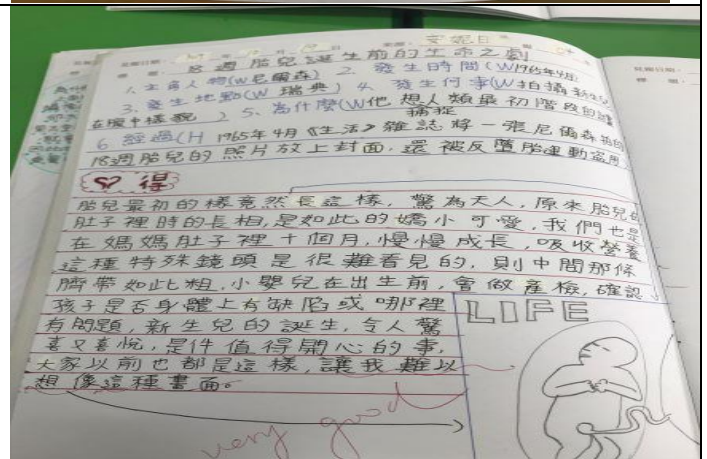 來源：安妮日
8週胎兒誕生前的生命之劇
1. 主角人物(W尼爾森) 2. 發生時間(W1965年4月)
3. 發生地點(W 瑞典) 4. 發生何事(W拍攝新生兒
在腹中樣貌) 5. 為什麼(W他想人類最初階段的
捕捉
6. 經過(H 1965年4月《生活》雜誌將一張尼爾森拍的
18週胎兒的照片放上封面,還被反墮胎運動盜用
心得
胎兒最初的樣竟然長這樣,驚為天人,原來胎兒在
肚子裡時的長相,是如此的嬌小可愛,我們也是
在媽媽肚子裡十個月,慢慢成長,吸收營養
這種特殊鏡頭是很難看見的,則中間那條
臍帶如此粗,小嬰兒在出生前,會做產檢,確認
孩子是否身體上有缺陷或哪裡
有問題,新生兒的誕生,令人驚
喜又喜悅,是件值得開心的事,
大家以前也都是這樣,讓我難以
想像這種畫面。
LIFE
very good